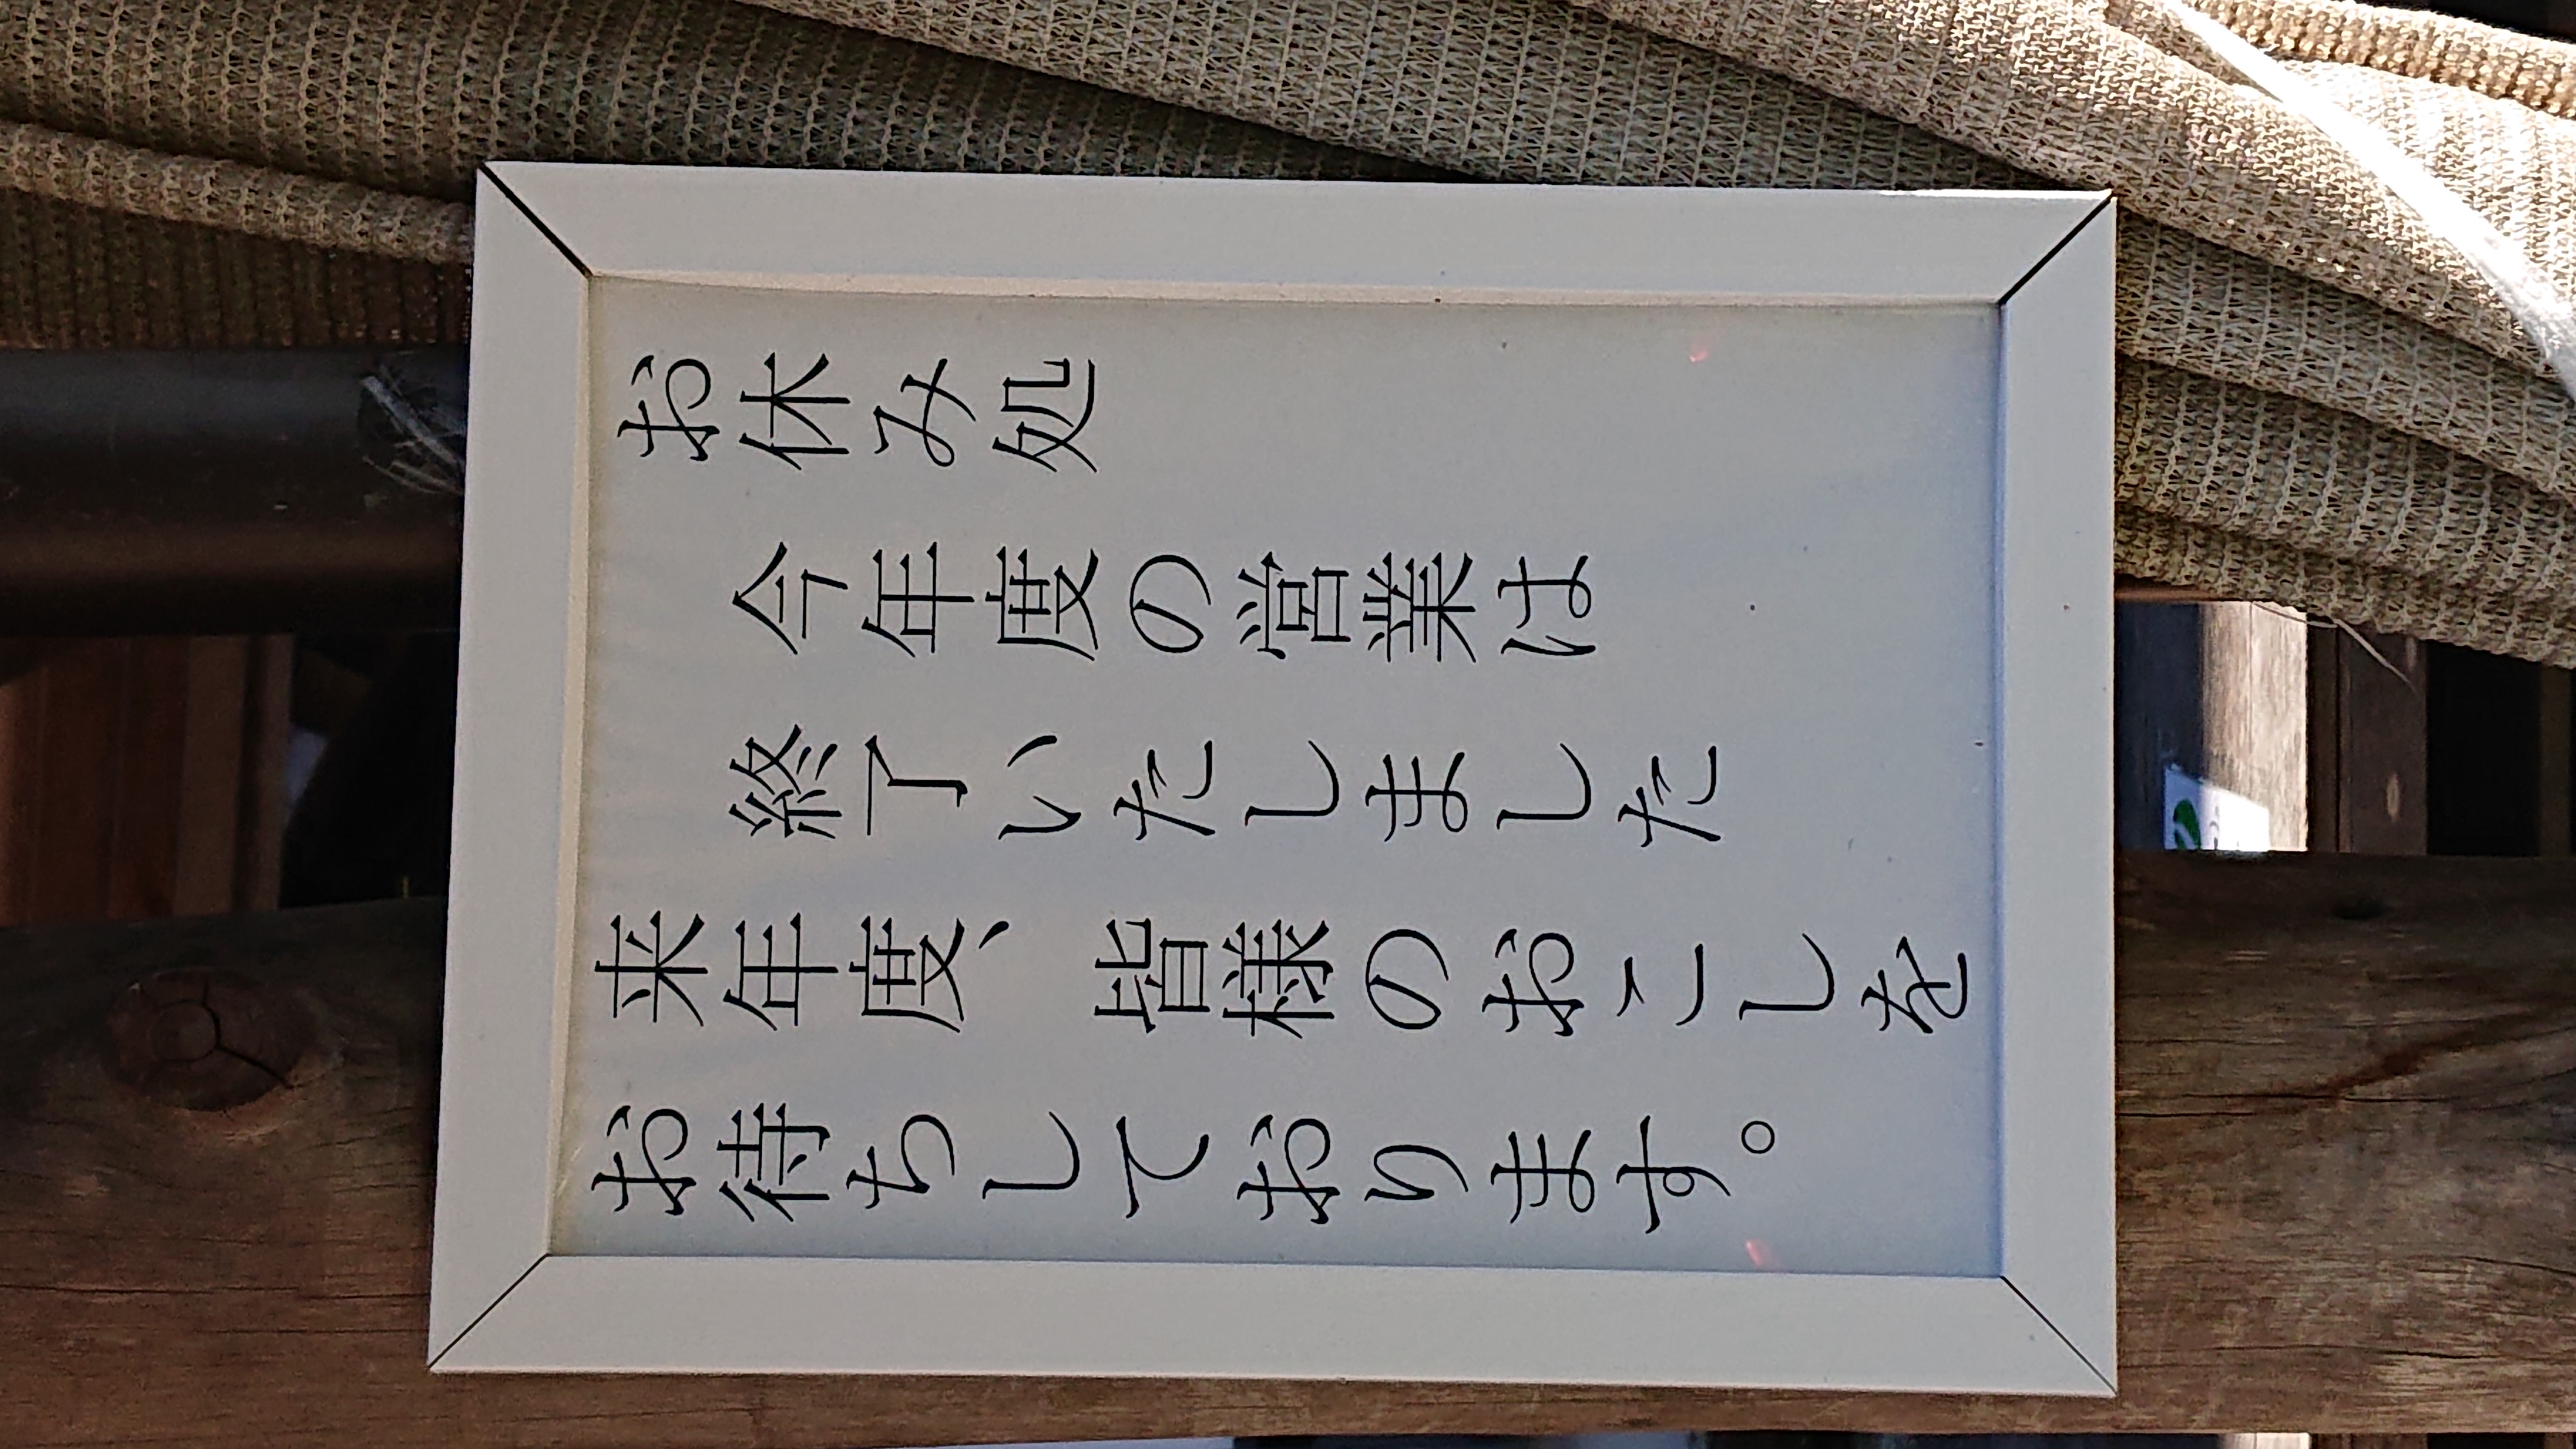 お休み処
今年度の営業は
終了いたしました
来年度、皆様のおこしを
お待ちしております。